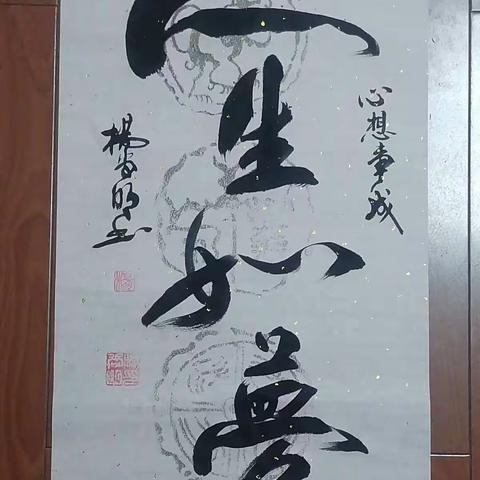 心想事成
人生如夢